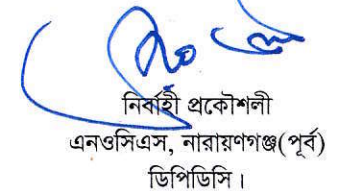 নির্বাহী প্রকৌশলী
এনওসিএস, নারায়ণগঞ্জ(পূর্ব)
ডিপিডিসি।